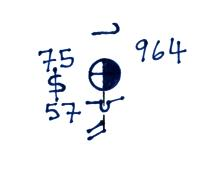 75
$
57
964